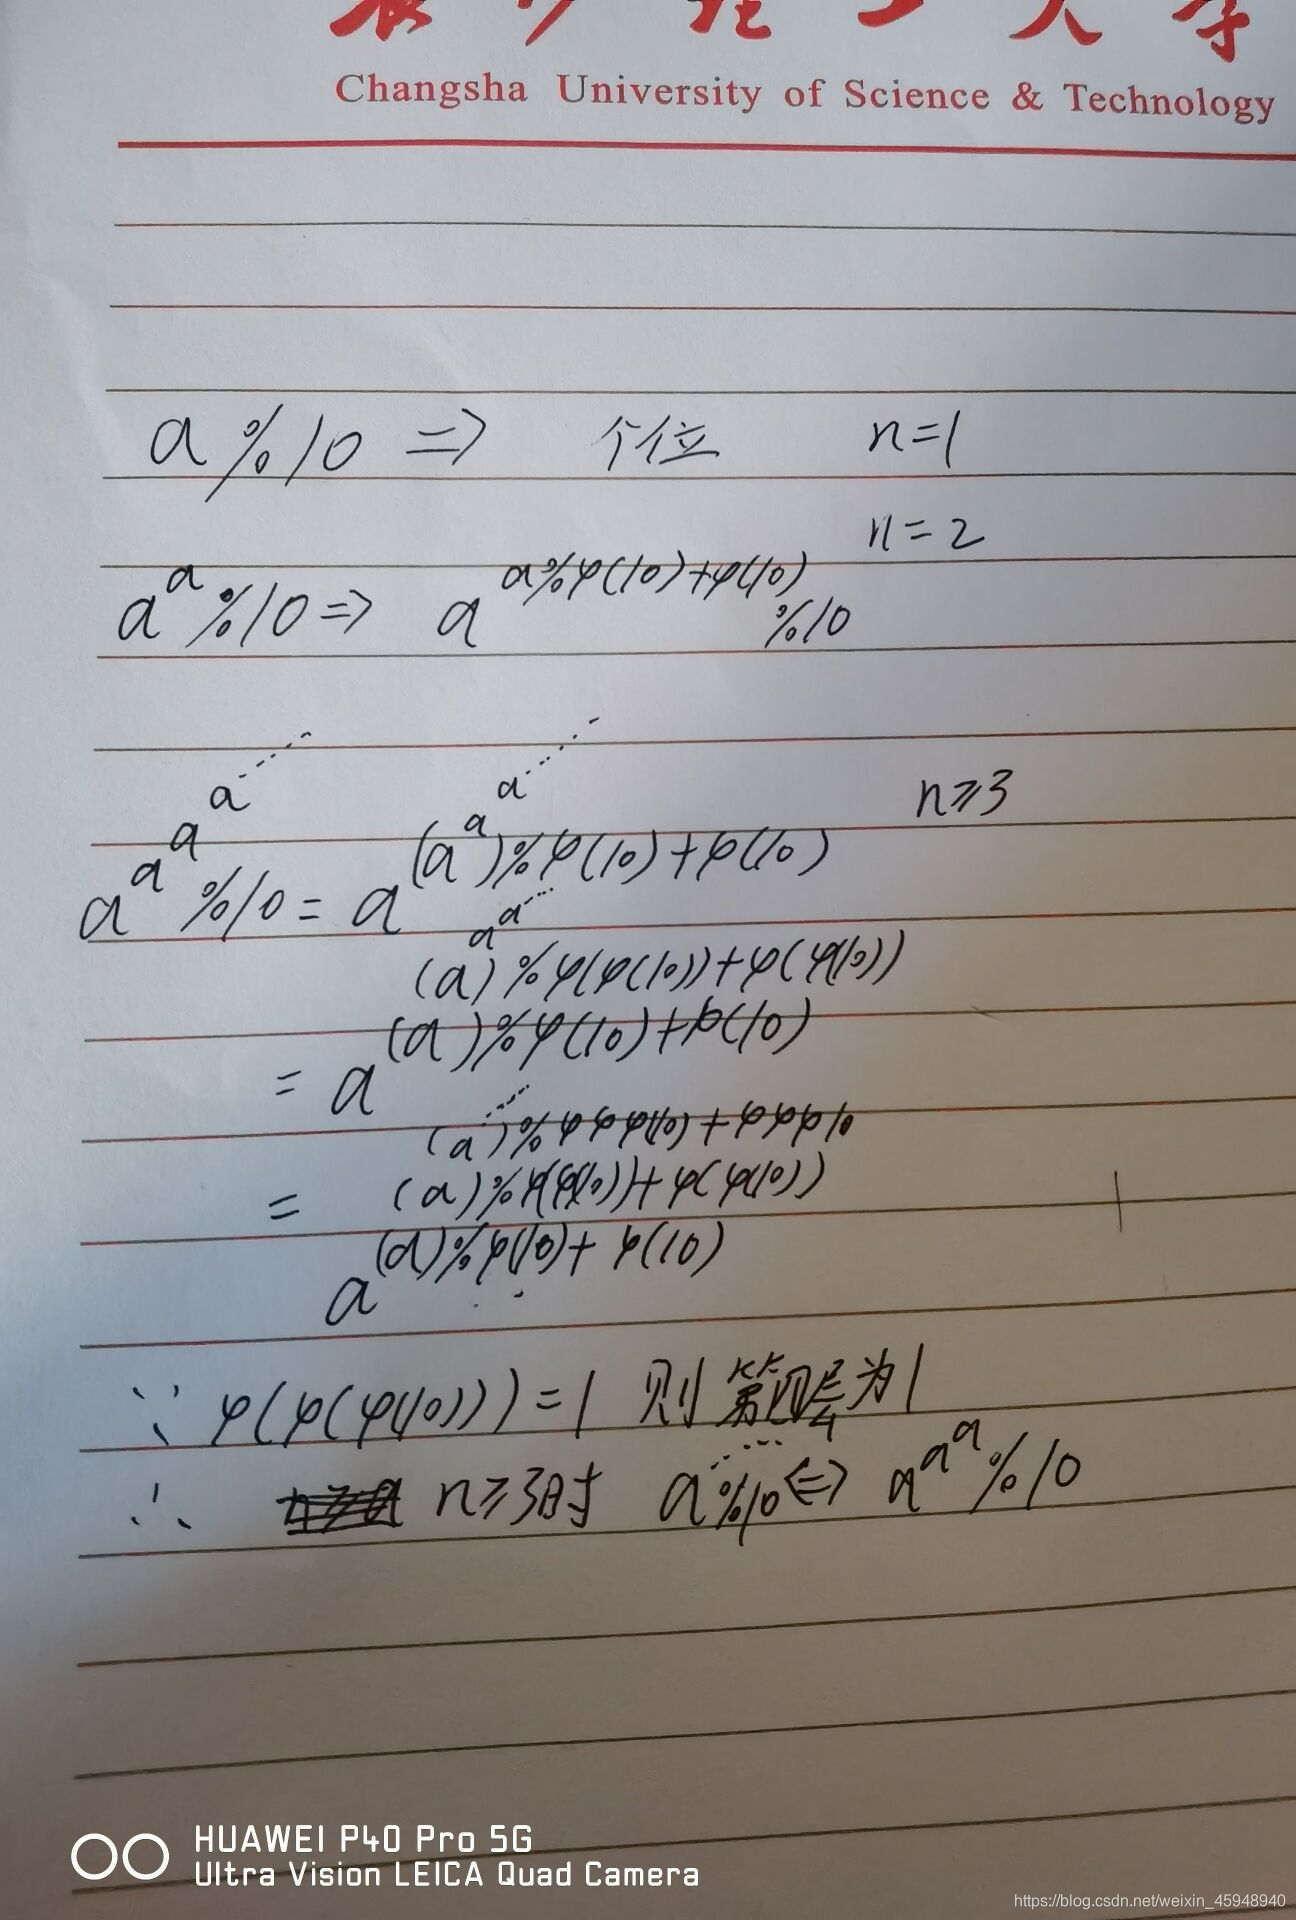 Changsha University of Science & Technology
a%10 => 个位 n=1
n=2
a^a%10 => a^(a%φ(10)+φ(10)) %10
n≥3
a^a^a^a^...%10 = a^((a^a^a^...)%φ(10)+φ(10))
= a^((a)^((a)^a^a^...%φ(φ(10))+φ(φ(10)))%φ(10)+φ(10))
= a^((a)^((a)^((a^...)%φφφ(10)+φφφ10)%φ(φ(10))+φ(φ(10)))%φ(10)+φ(10))
∵ φ(φ(φ(10)))=1 则 第四层为1
4
∴ n≥3时 a^...%10 <=> a^a^a%10
HUAWEI P40 Pro 5G
Ultra Vision LEICA Quad Camera
https://blog.csdn.net/weixin_45948940